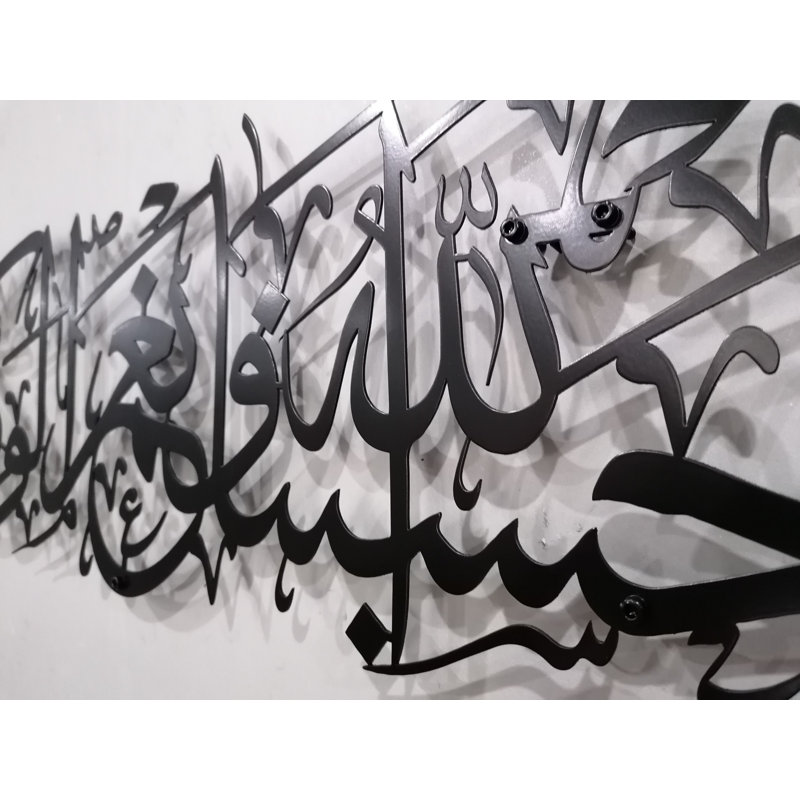 حسبنا الله ونعم الو